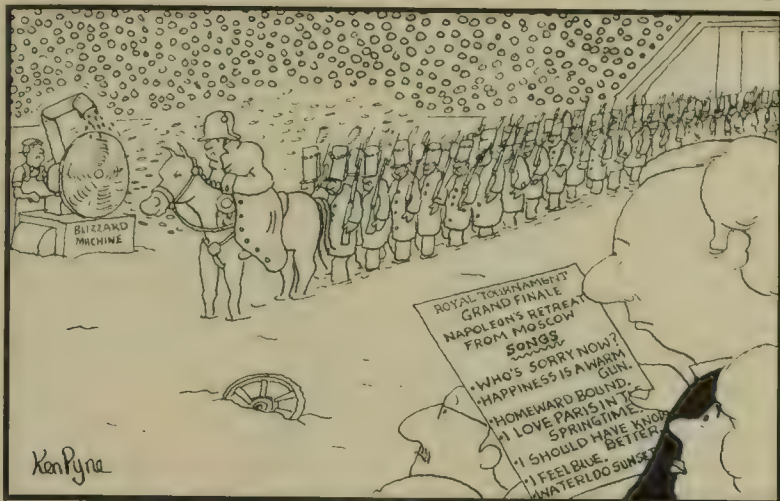 BLIZZARD
MACHINE
ROYAL TOURNAMENT
GRAND FINALE
NAPOLEON'S RETREAT
FROM MOSCOW
SONGS
•WHO'S SORRY NOW?
•HAPPINESS IS A WARM
GUN.
•HOMEWARD BOUND.
•I LOVE PARIS IN T
SPRINGTIME.
•I SHOULD HAVE KNOW
BETTER.
•I FEEL BLUE.
•WATERLOO SUNSET
Ken Pyne